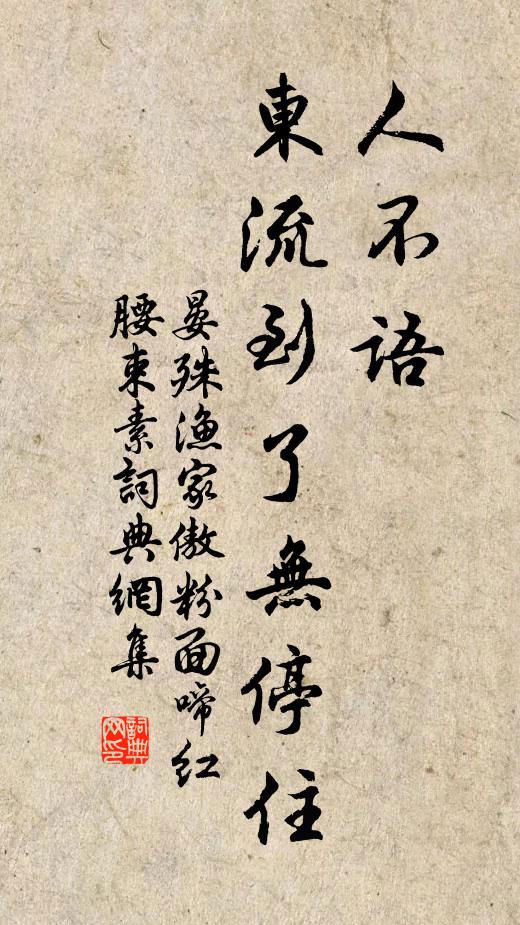 人不語
東流到了無停住
晏殊漁家傲粉面啼紅
腰束素詞典網集
詞典
网印